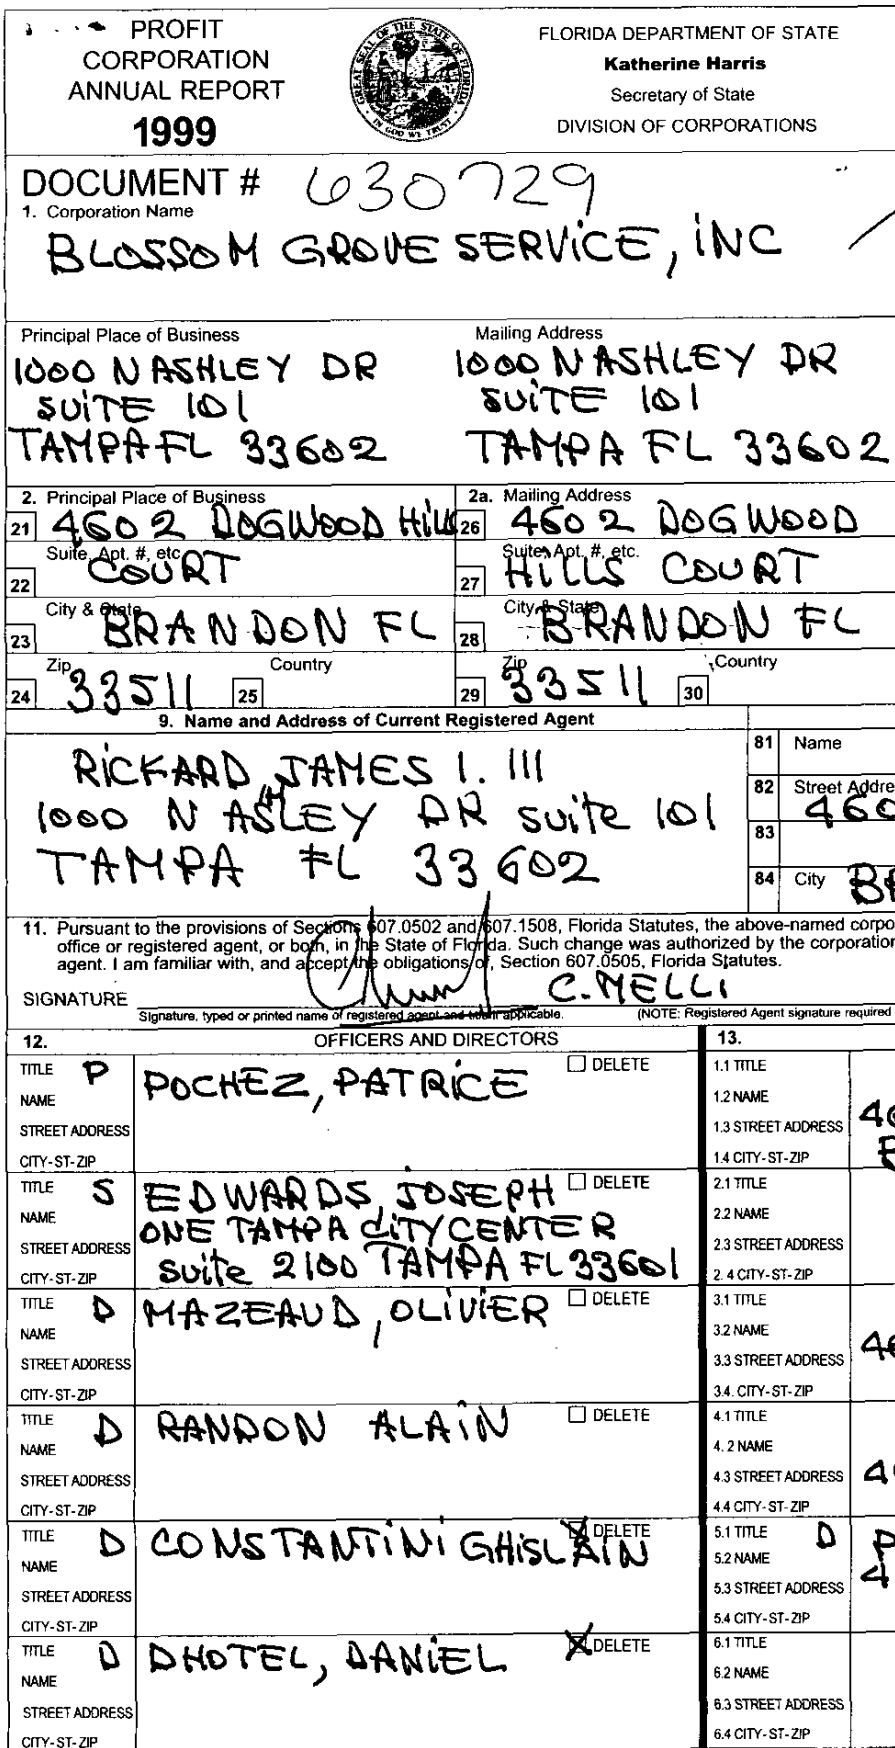 PROFIT
CORPORATION
ANNUAL REPORT
1999
GREAT SEAL OF THE STATE OF FLORIDA
IN GOD WE TRUST
FLORIDA DEPARTMENT OF STATE
Katherine Harris
Secretary of State
DIVISION OF CORPORATIONS
DOCUMENT # 630729
1. Corporation Name
BLOSSOM GROVE SERVICE, INC
Principal Place of Business
1000 N ASHLEY DR
SUITE 101
TAMPA FL 33602
Mailing Address
1000 N ASHLEY DR
SUITE 101
TAMPA FL 33602
2. Principal Place of Business
21 4602 DOGWOOD Hills
Suite, Apt. #, etc.
22 COURT
City & State
23 BRANDON FL
Zip Country
24 33511 25
2a. Mailing Address
26 4602 DOGWOOD
Suite, Apt. #, etc.
27 HILLS COURT
City & State
28 BRANDON FL
Zip Country
29 33511 30
9. Name and Address of Current Registered Agent
RICKARD, JAMES I. III
1000 N ASHLEY DR suite 101
TAMPA FL 33602
81 Name
82 Street Addre
460
83
84 City B
11. Pursuant to the provisions of Sections 607.0502 and 607.1508, Florida Statutes, the above-named corpo
office or registered agent, or both, in the State of Florida. Such change was authorized by the corporation
agent. I am familiar with, and accept the obligations of, Section 607.0505, Florida Statutes.
SIGNATURE C. MELLI
Signature, typed or printed name of registered agent and title if applicable. (NOTE: Registered Agent signature required
12. OFFICERS AND DIRECTORS 13.
TITLE P DELETE
NAME POCHEZ, PATRICE
STREET ADDRESS
CITY-ST-ZIP
1.1 TITLE
1.2 NAME
1.3 STREET ADDRESS 4
1.4 CITY-ST-ZIP
TITLE S DELETE
NAME EDWARDS, JOSEPH
STREET ADDRESS ONE TAMPA CITY CENTER
CITY-ST-ZIP suite 2100 TAMPA FL 33601
2.1 TITLE
2.2 NAME
2.3 STREET ADDRESS
2.4 CITY-ST-ZIP
TITLE D DELETE
NAME MAZEAUD, OLIVIER
STREET ADDRESS
CITY-ST-ZIP
3.1 TITLE
3.2 NAME
3.3 STREET ADDRESS 4
3.4. CITY-ST-ZIP
TITLE D DELETE
NAME RANDON ALAIN
STREET ADDRESS
CITY-ST-ZIP
4.1 TITLE
4.2 NAME
4.3 STREET ADDRESS 4
4.4 CITY-ST-ZIP
TITLE D DELETE
NAME CONSTANTINI GHISLAIN
STREET ADDRESS
CITY-ST-ZIP
5.1 TITLE D
5.2 NAME
5.3 STREET ADDRESS 4
5.4 CITY-ST-ZIP
TITLE D DELETE
NAME DHOTEL, DANIEL
STREET ADDRESS
CITY-ST-ZIP
6.1 TITLE
6.2 NAME
6.3 STREET ADDRESS
6.4 CITY-ST-ZIP